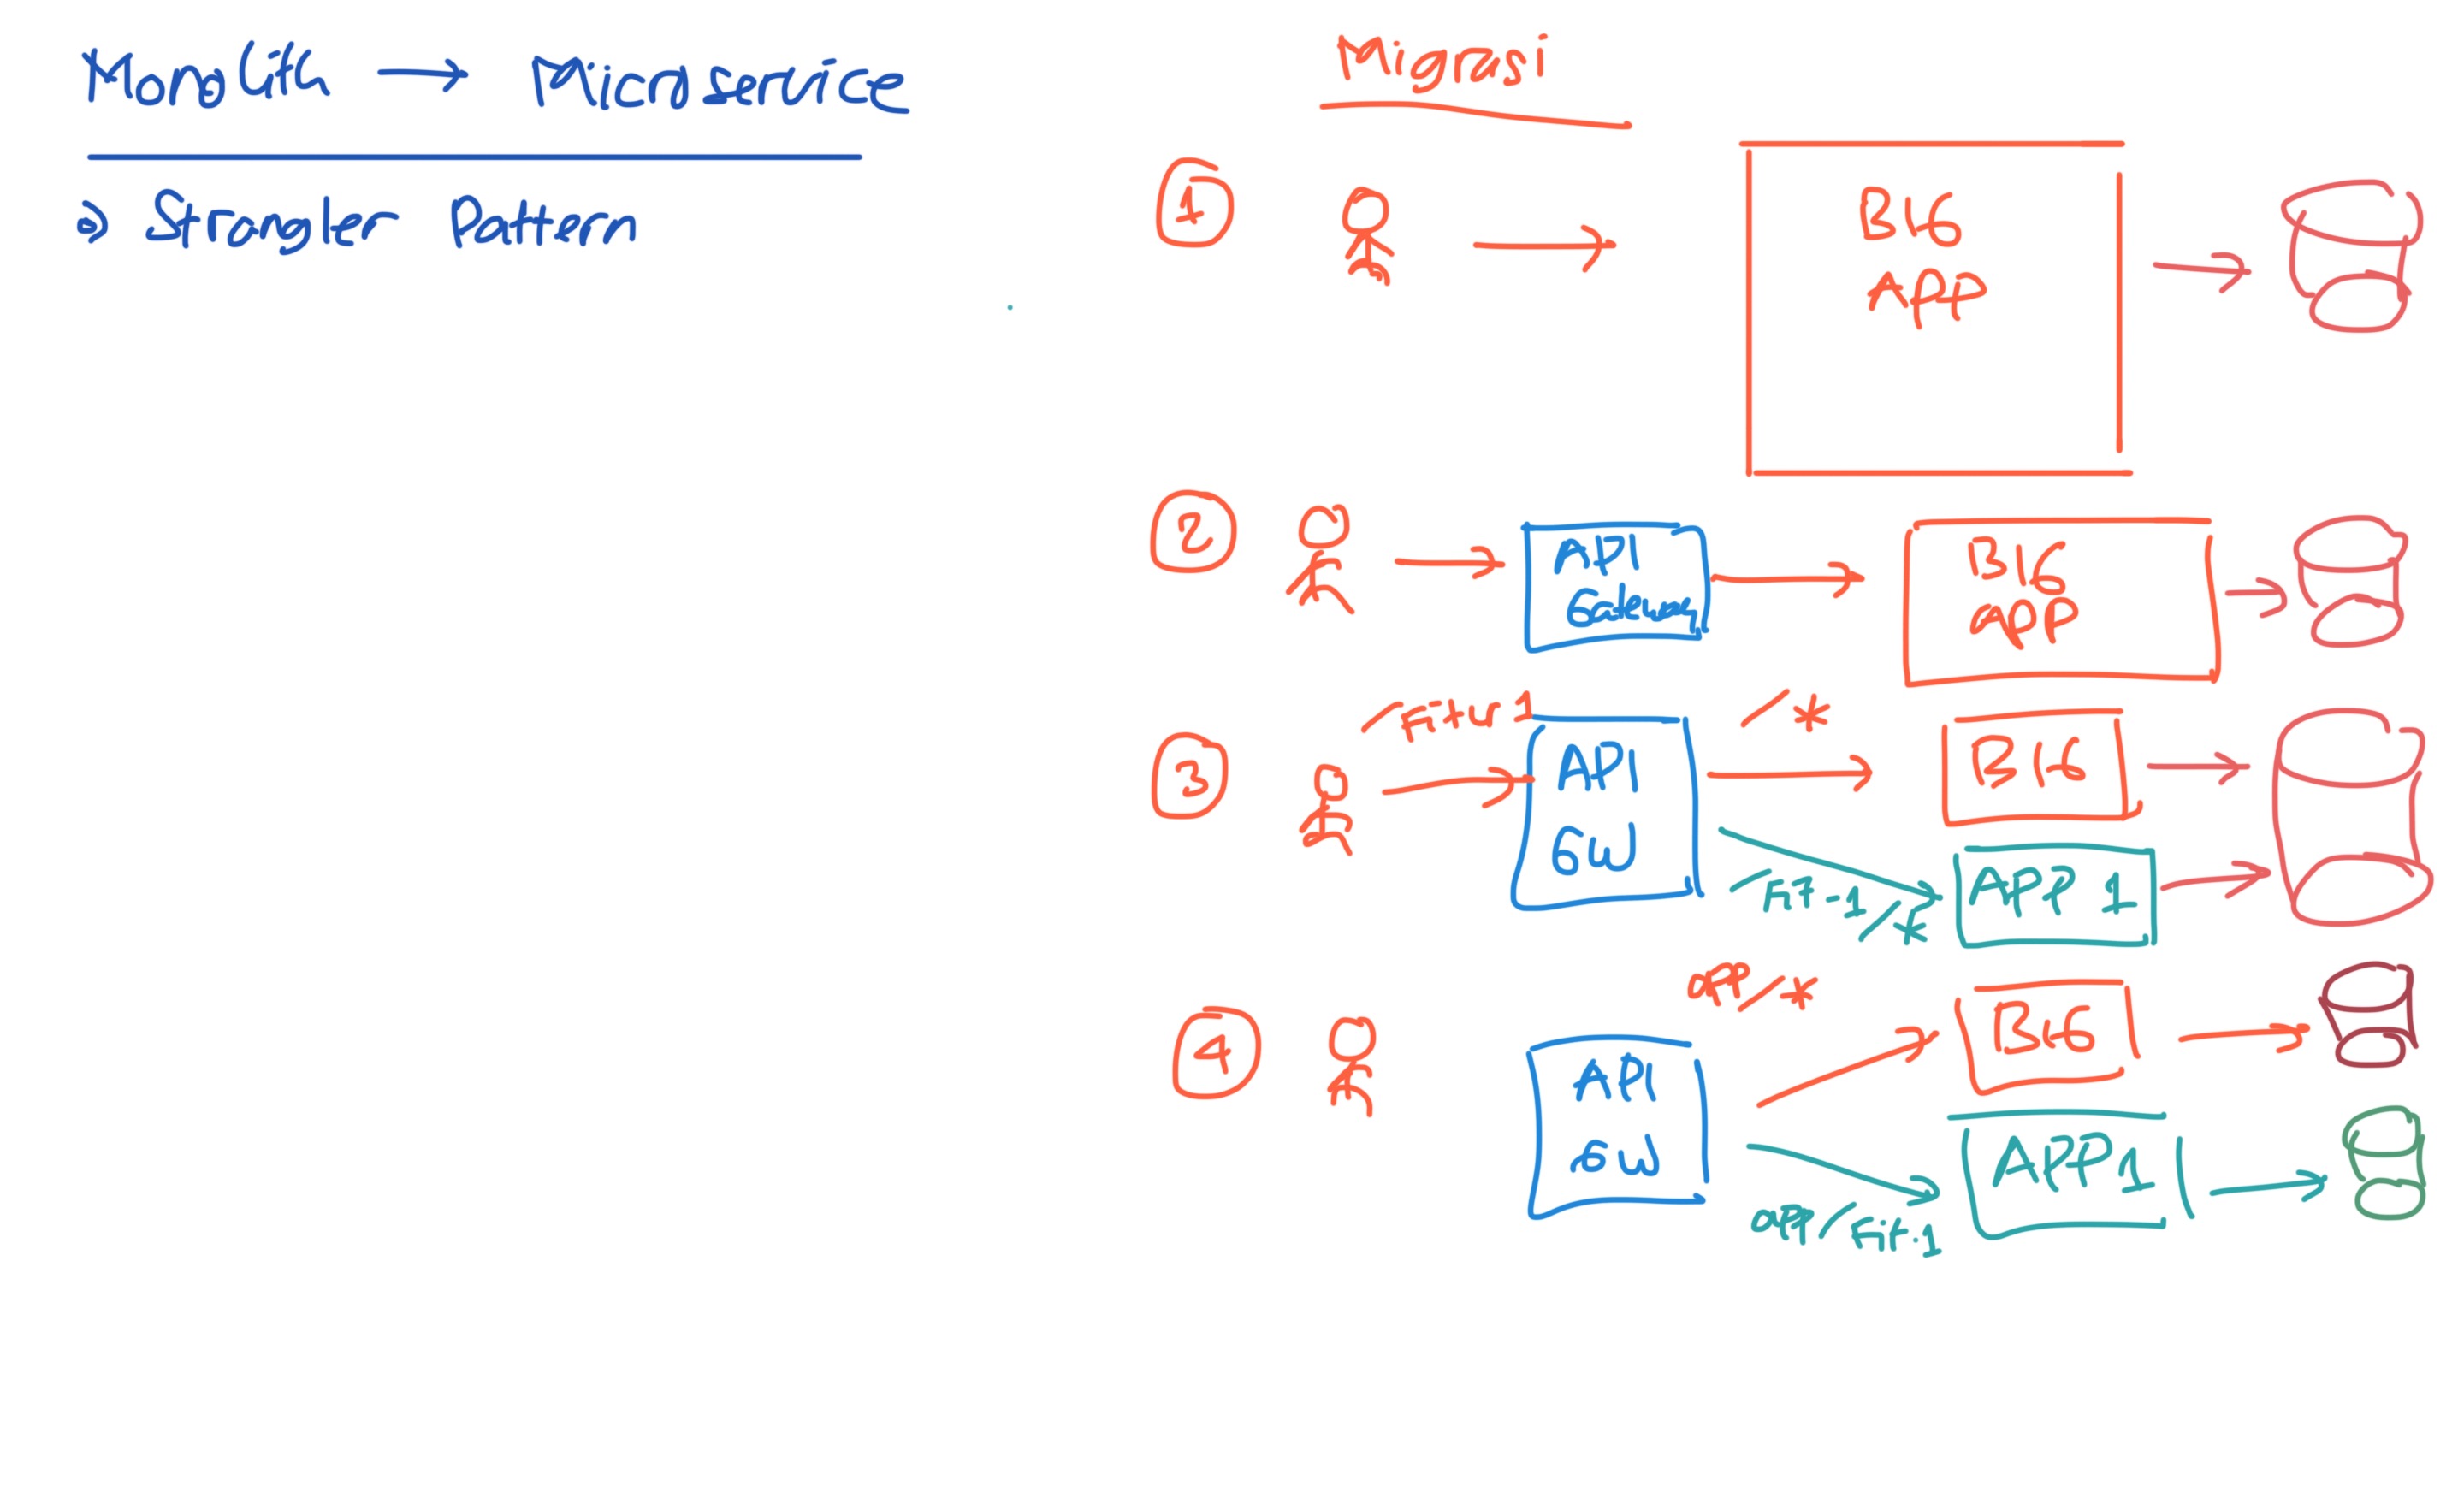 Monolith → Microservice
Strangler Pattern
Migrasi
1
BIG
APP
2
API
Gateway
BIG
APP
3
/Fitur 1
API
GW
/*
BIG
/FIT-1/*
APP 1
4
API
GW
app/*
BIG
app/Fit.1
APP1